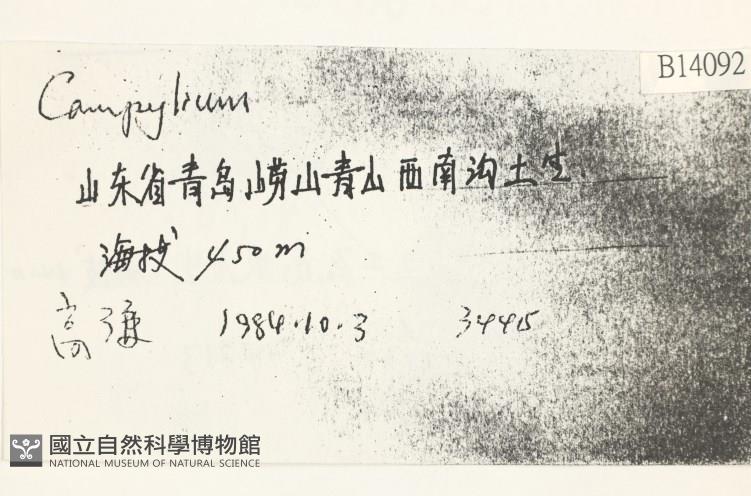 B14092
Campylium
山东省青岛崂山青山西南沟土生.
海拔 450m
高谦 1984.10.3 34415
國立自然科學博物館
NATIONAL MUSEUM OF NATURAL SCIENCE